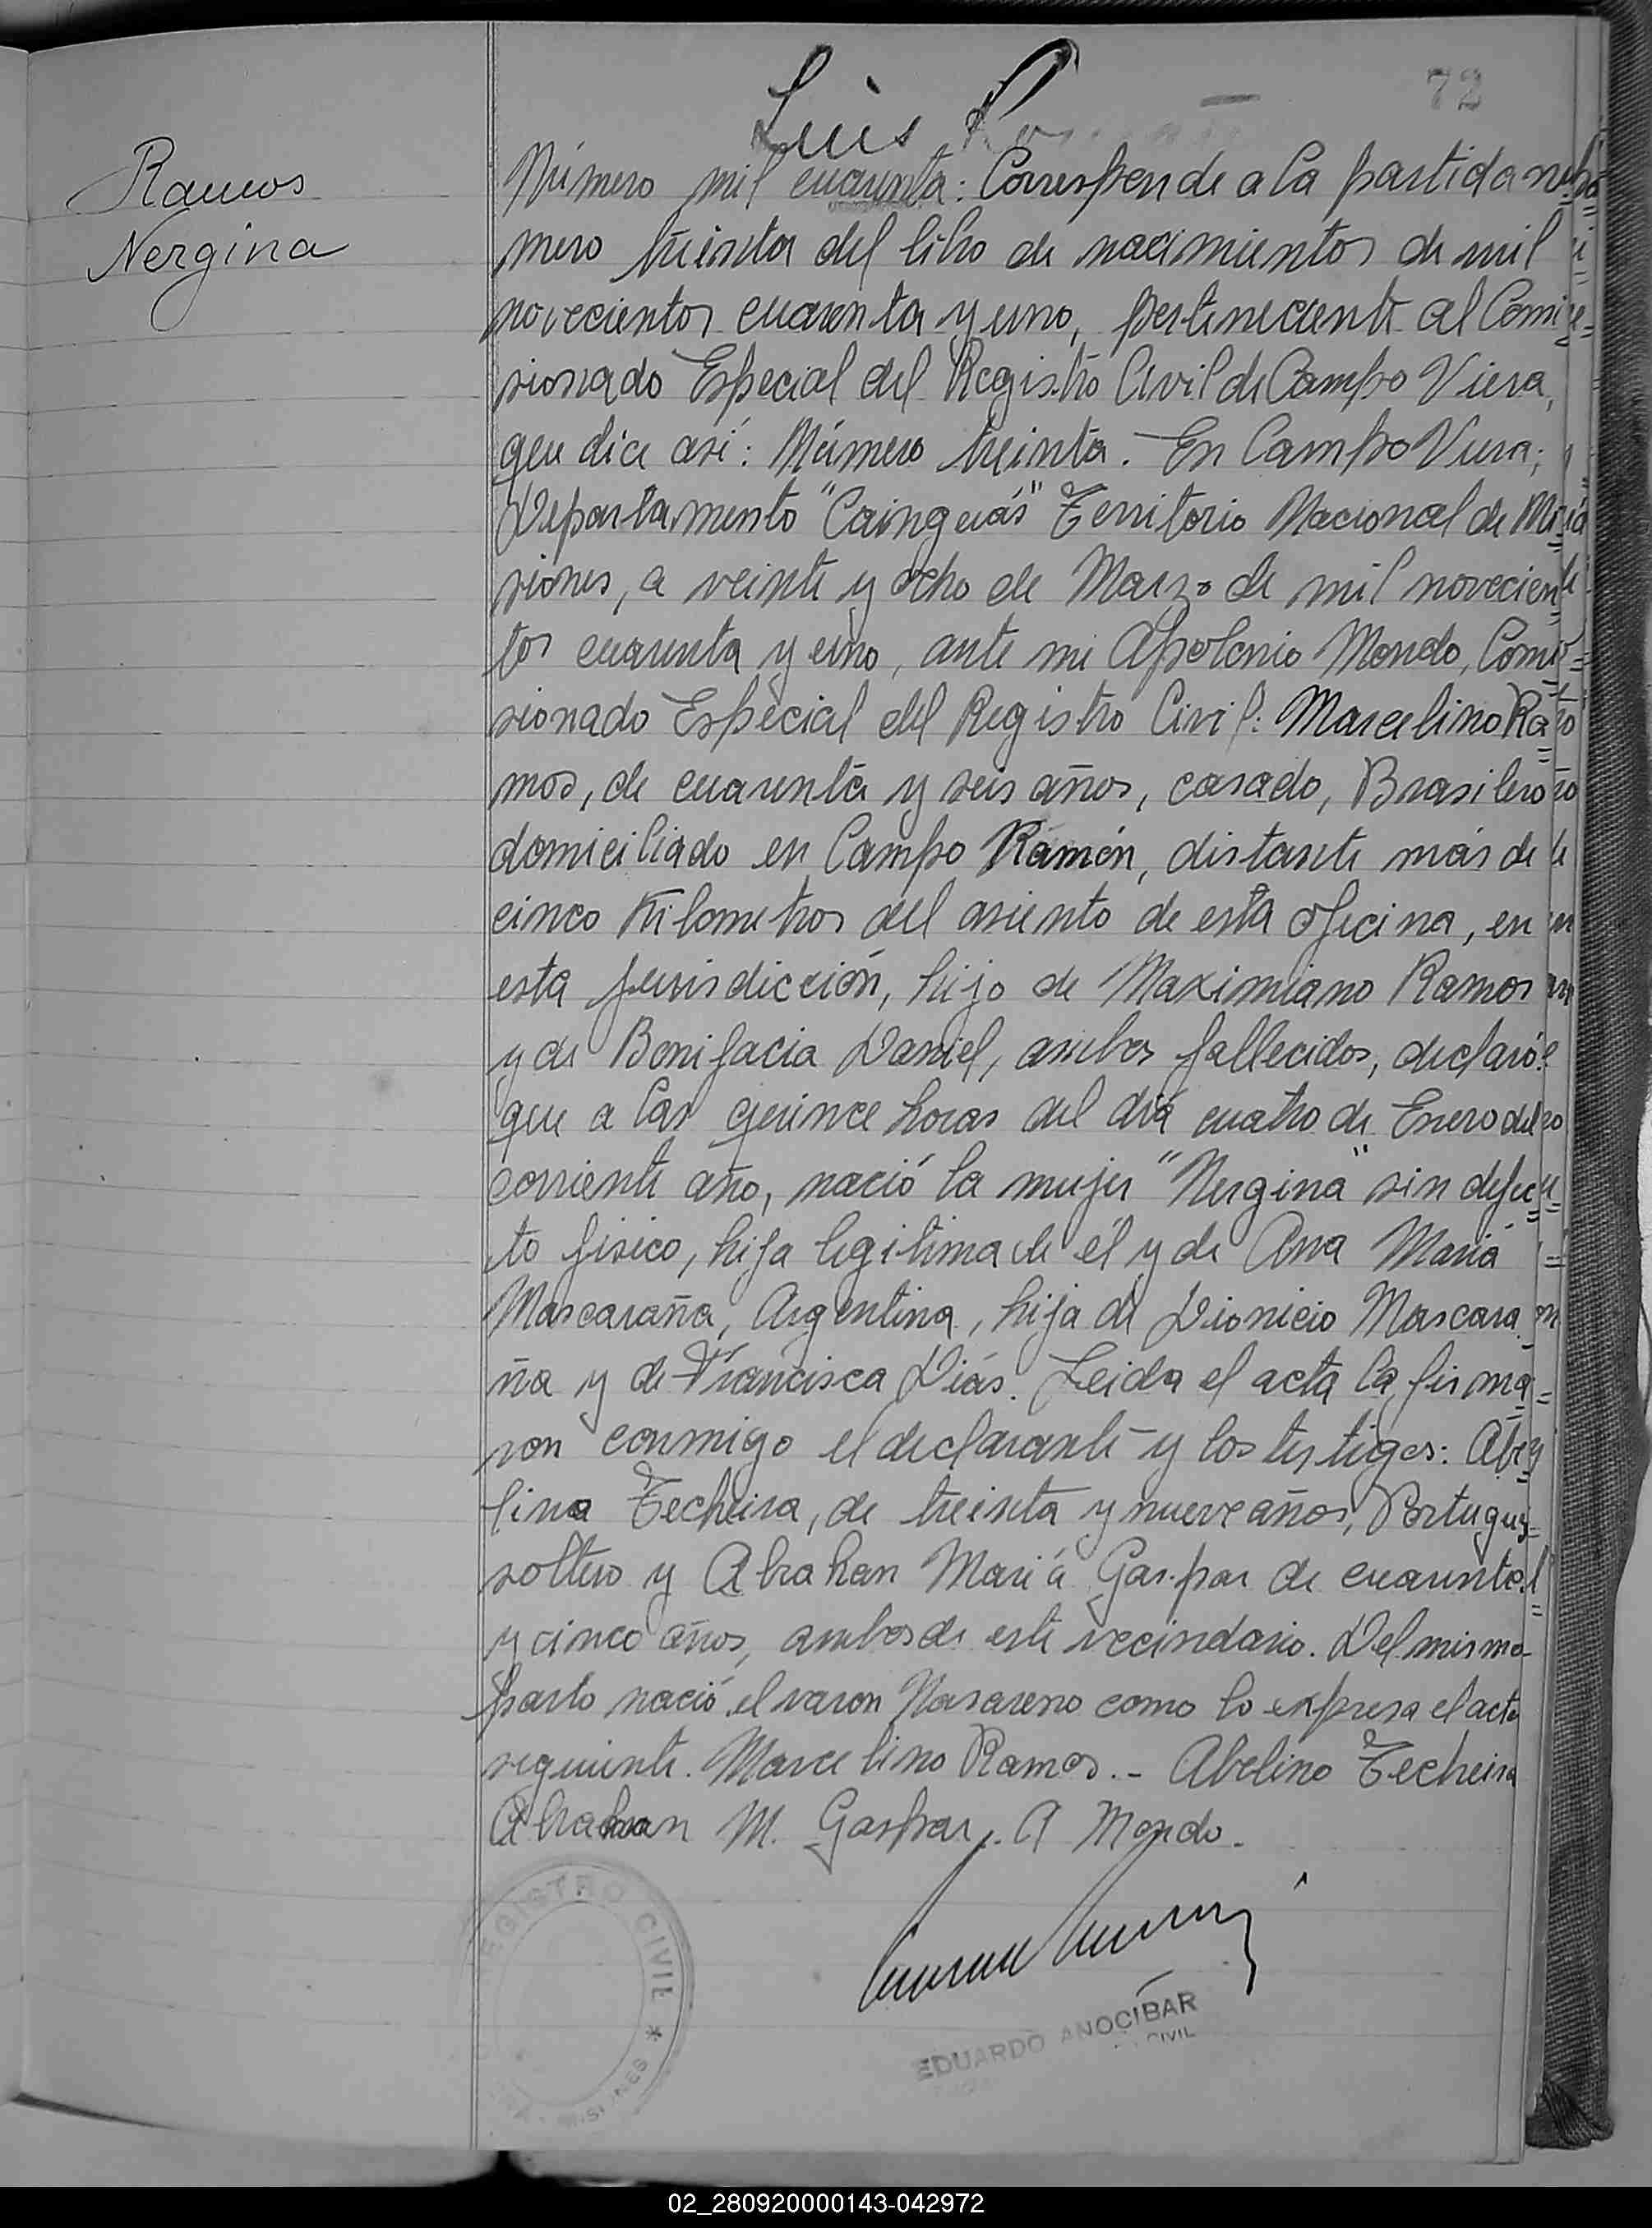 72
Luis
Ramos
Nergina
Número mil cuarenta: Corresponde a la partida nú
mero treinta del libro de nacimientos de mil
novecientos cuarenta y uno, perteneciente al Comi
sionado Especial del Registro Civil de Campo Viera,
que dice asi: Número treinta. En Campo Viera;
Departamento "Cainguás" Territorio Nacional de Mi
siones, a veinte y ocho de Marzo de mil novecien
tos cuarenta y uno, ante mi Apolonio Mondo, Comi
sionado Especial del Registro Civil: Marcelino Ra
mos, de cuarenta y seis años, casado, Brasilero
domiciliado en Campo Ramón, distante más de
cinco Kilometros del asiento de esta oficina, en
esta jurisdicción, hijo de Maximiano Ramos
y de Bonifacia Daniel, ambos fallecidos, declaró:
que a las quince horas del diá cuatro de Enero del
corriente año, nació la mujer "Nergina" sin defec
to fisico, hija legitima de él y de Ana Maria
Mascaraña, Argentina, hija de Dionicio Mascara
ña y de Francisca Diás. Leida el acta la firma
ron conmigo el declarante y los testigos: Abe
lino Techeira, de treinta y nueve años, Portugues
soltero y Abrahan Mariá Gaspar de cuarenta
y cinco años, ambos de este vecindario. Del mismo
parto nació el varon Nasareno como lo expresa el acta
siguiente. Marcelino Ramos.- Abelino Techeira
Abrahan M. Gaspar. A Mondo.
REGISTRO CIVIL * MISIONES
EDUARDO ANOCÍBAR
CIVIL
02_280920000143-042972